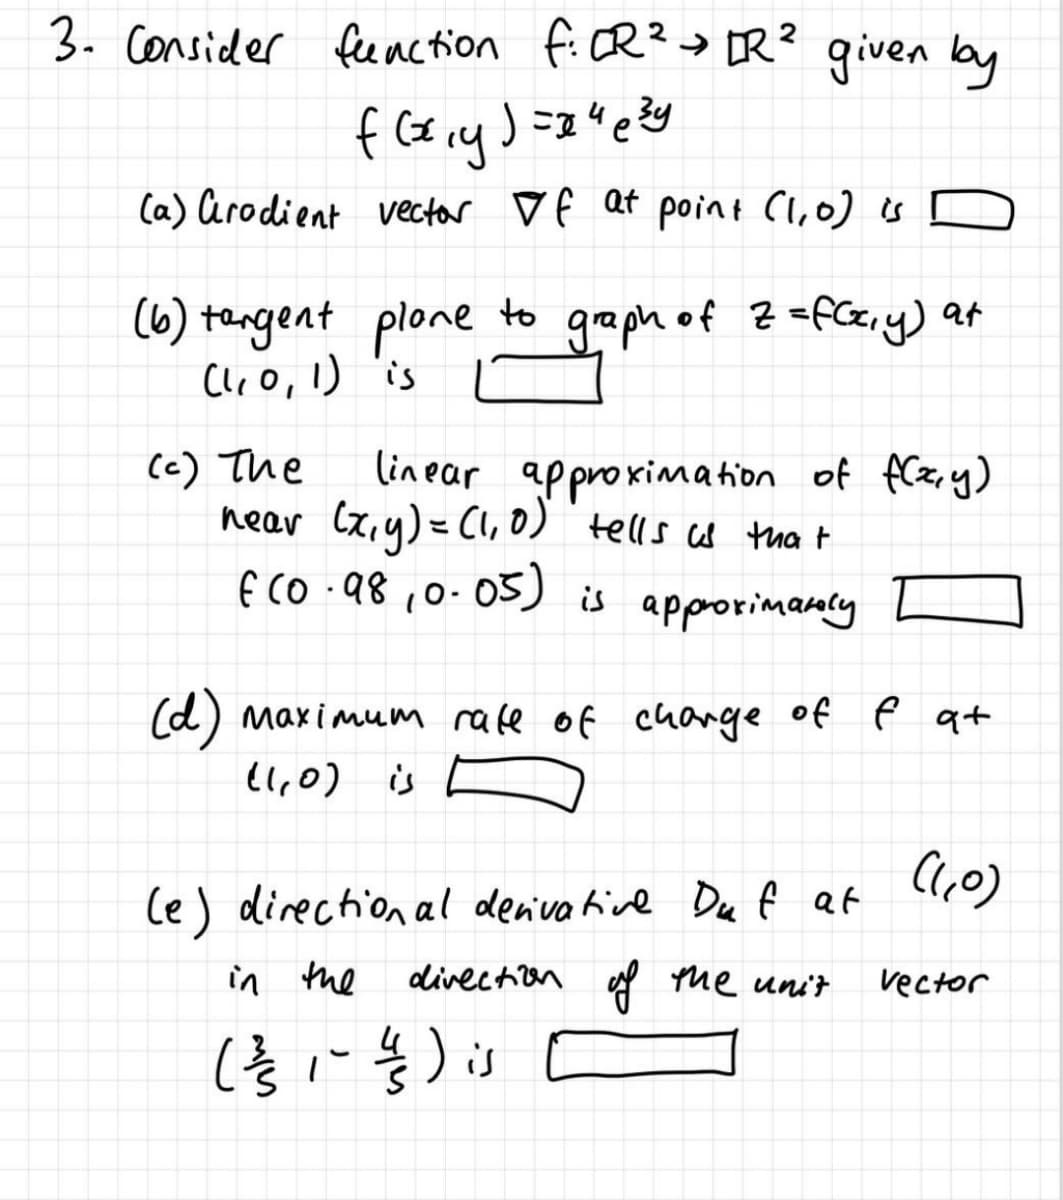 3. Consider function f: ℝ² → ℝ² given by
f(x,y) = x⁴e³ʸ
(a) Gradient vector ∇f at point (1,0) is
(b) tangent plane to graph of z = f(x,y) at
(1,0,1) is
(c) The linear approximation of f(x,y)
near (x,y) = (1,0) tells us that
f(0.98,0.05) is approximately
(d) maximum rate of change of f at
(1,0) is
(e) directional derivative Du f at (1,0)
in the direction of the unit vector
(3/5, -4/5) is